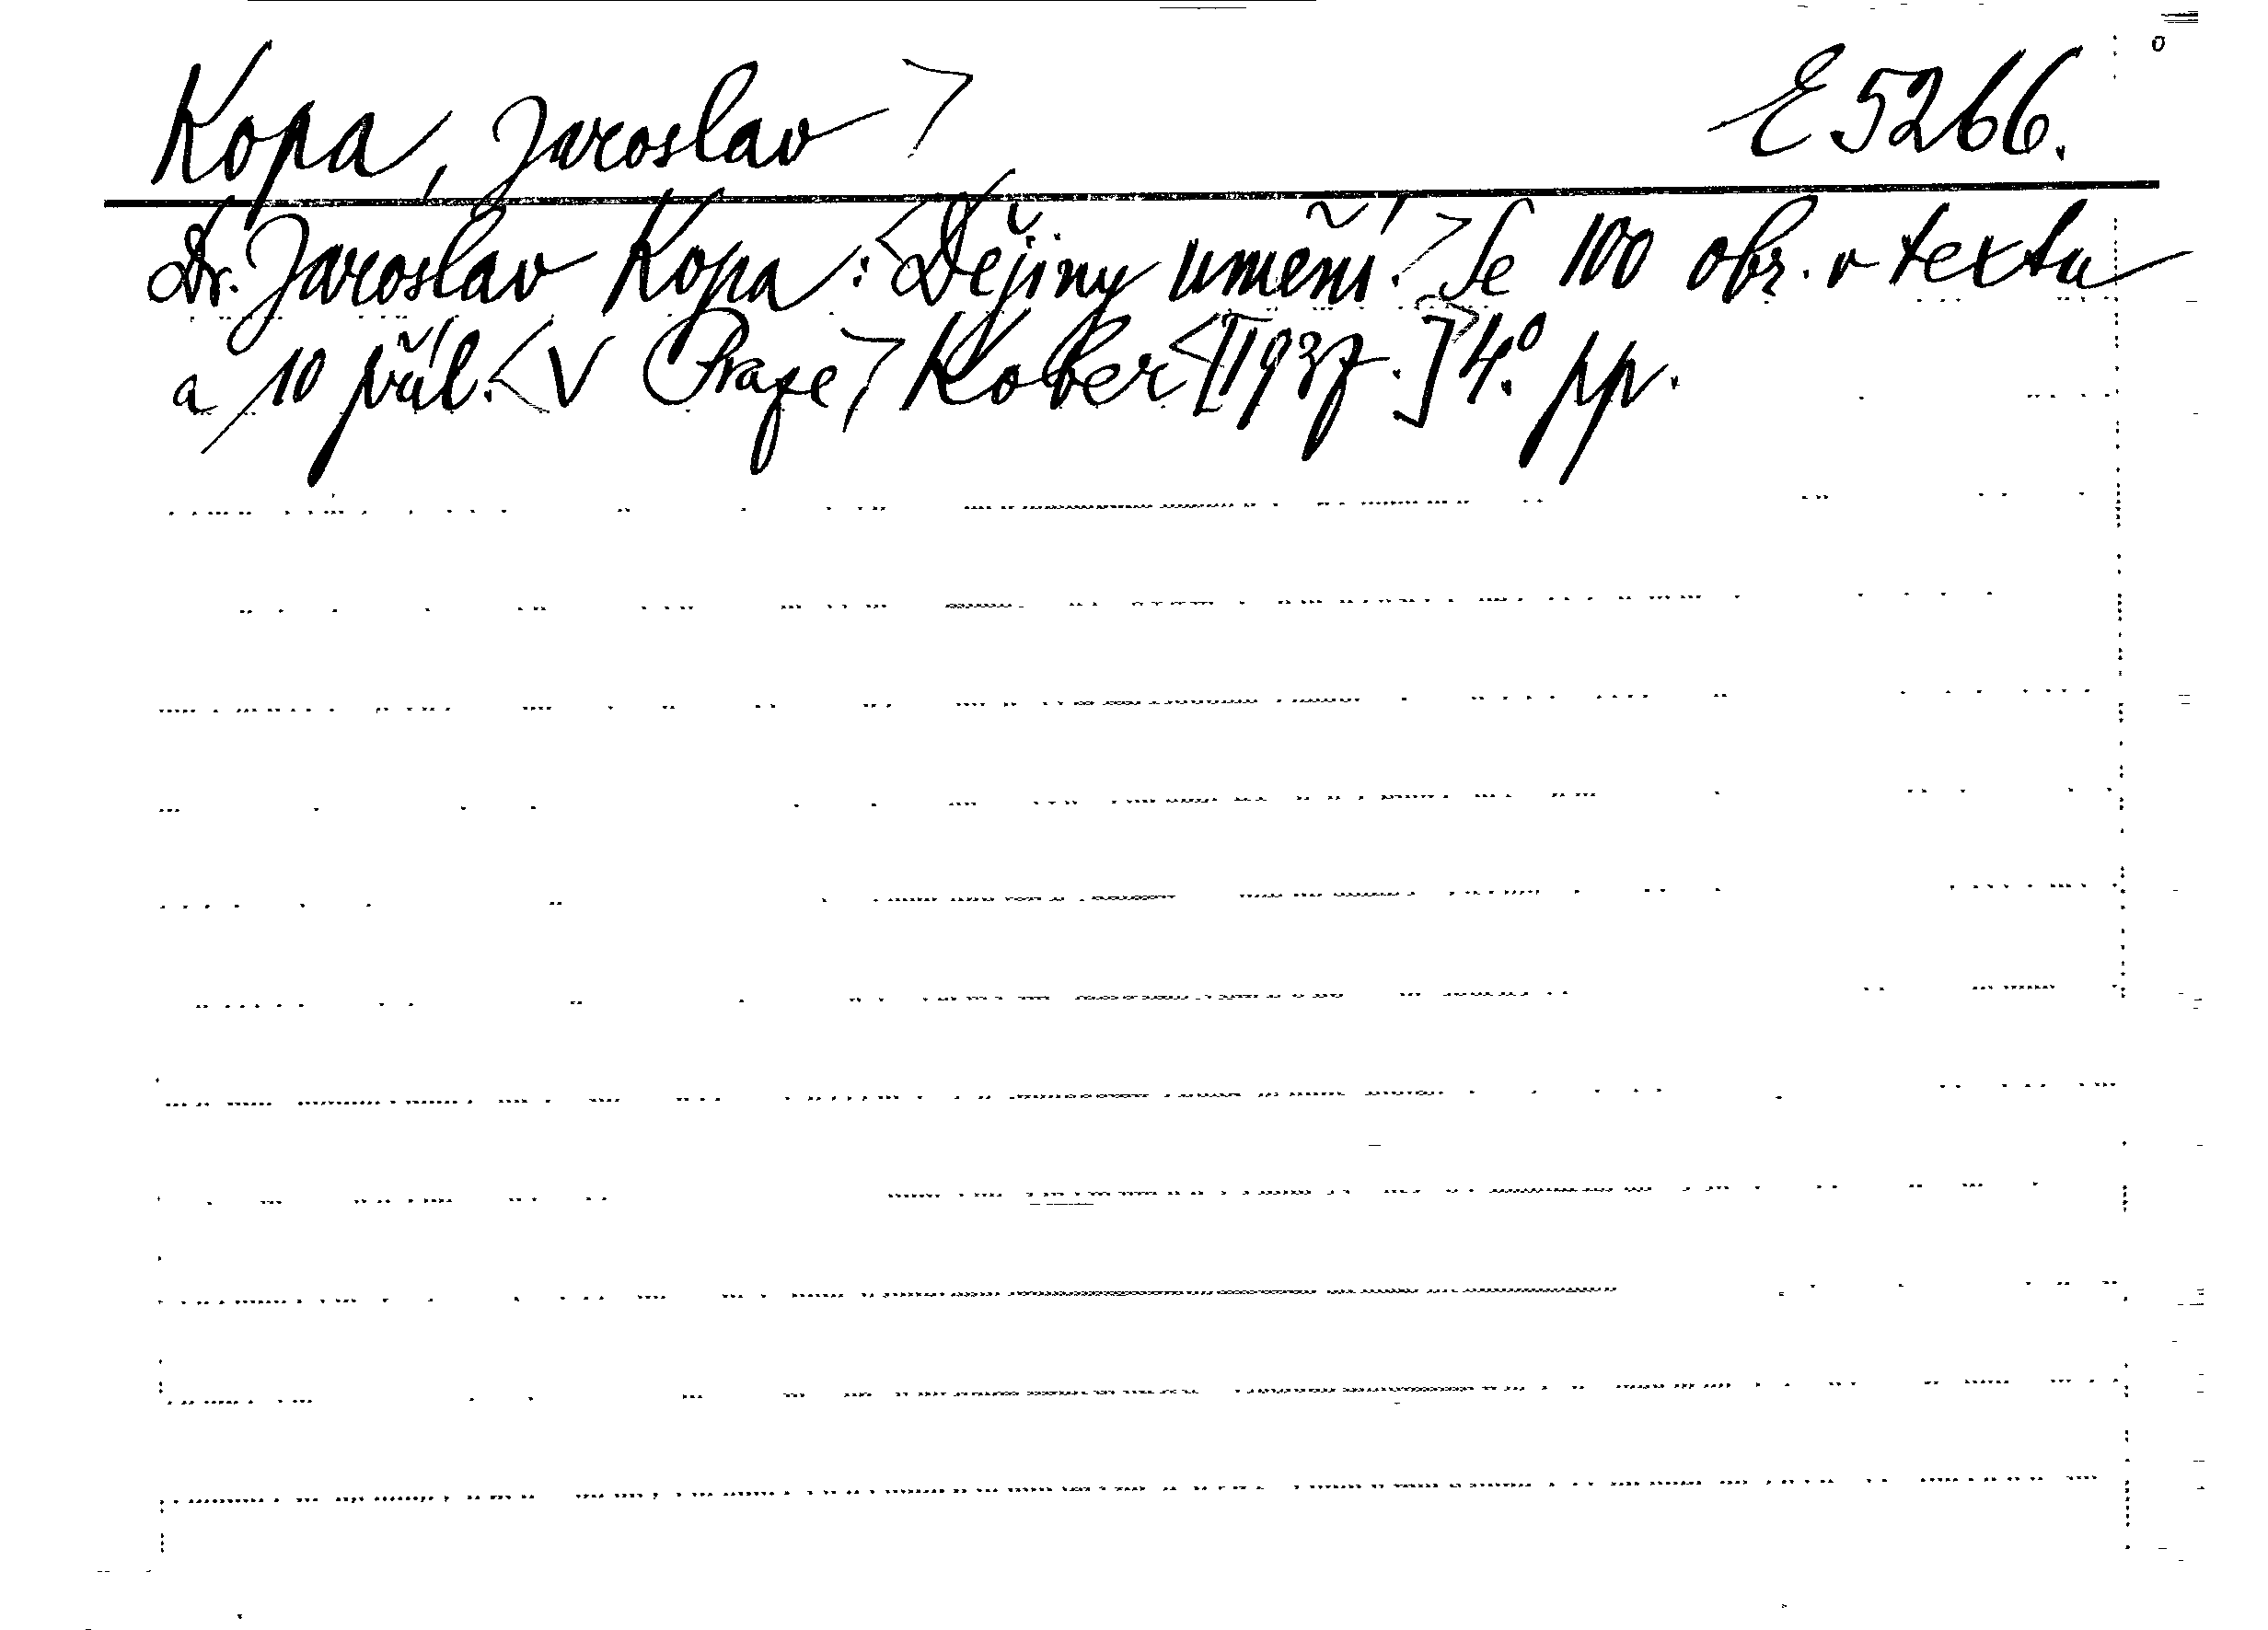 Kopa, Jaroslav> E 5266.
Dr. Jaroslav Kopa: <Dějiny umění.> Se 100 obr. v textu
a 10 příl. <V Praze> Kober <[1937.]> 4.° pp.